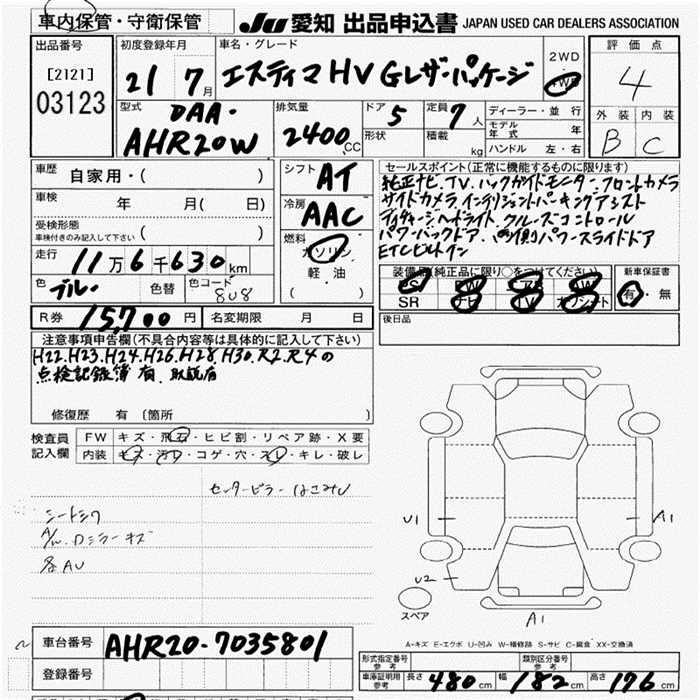 車内保管・守衛保管
JU 愛知 出品申込書 JAPAN USED CAR DEALERS ASSOCIATION
出品番号
[2121]
03123
初度登録年月
21 7月
車名・グレード
エスティマHV Gレザーパッケージ
2WD
4WD
評価点
4
外装 内装
B C
型式
DAA-
AHR20W
排気量
2400CC
ドア 5
形状
定員 7人
積載 kg
ディーラー・並行
モデル年式 年
ハンドル 左・右
車歴 自家用・( )
車検 年 月( 日)
受検形態
車検付きのみ記入して下さい ( )
走行 11万6千630km
色 ブルー 色替 色コード 8U8
シフト AT
冷房 AAC
燃料 ガソリン
軽油
( )
セールスポイント(正常に機能するものに限ります)
純正ナビ.TV.バックガイドモニター.フロントカメラ
サイドカメラ.インテリジェントパーキングアシスト
ディスチャージヘッドライト.クルーズコントロール
パワーバックドア.両側パワースライドドア
ETCビルトイン
装備品(純正品に限り○をつけてください)
PS PW AB AW
SR ナビ TV カワシート
新車保証書
有・無
R券 15,700円 名変期限 月 日
後日品
注意事項申告欄(不具合内容等は具体的に記入して下さい)
H22.H23.H24.H26.H28.H30.R2.R4の
点検記録簿 有.取説有
修復歴 有〔箇所 〕
検査員
記入欄
FW キズ・飛石・ヒビ割・リペア跡・X要
内装 キズ・汚レ・コゲ・穴・スレ・キレ・破レ
センターピラー はこみU
シートシワ
A/w.Dミラーキズ
各AU
U1
A1
U2
スペア
A1
A-キズ E-エクボ U-凹み W-補修跡 S-サビ C-腐食 XX-交換済
車台番号 AHR20-7035801
登録番号
形式指定番号
参考
類別区分番号
参考
車庫証明用
参考
長さ 480cm 幅 182cm 高さ 176cm